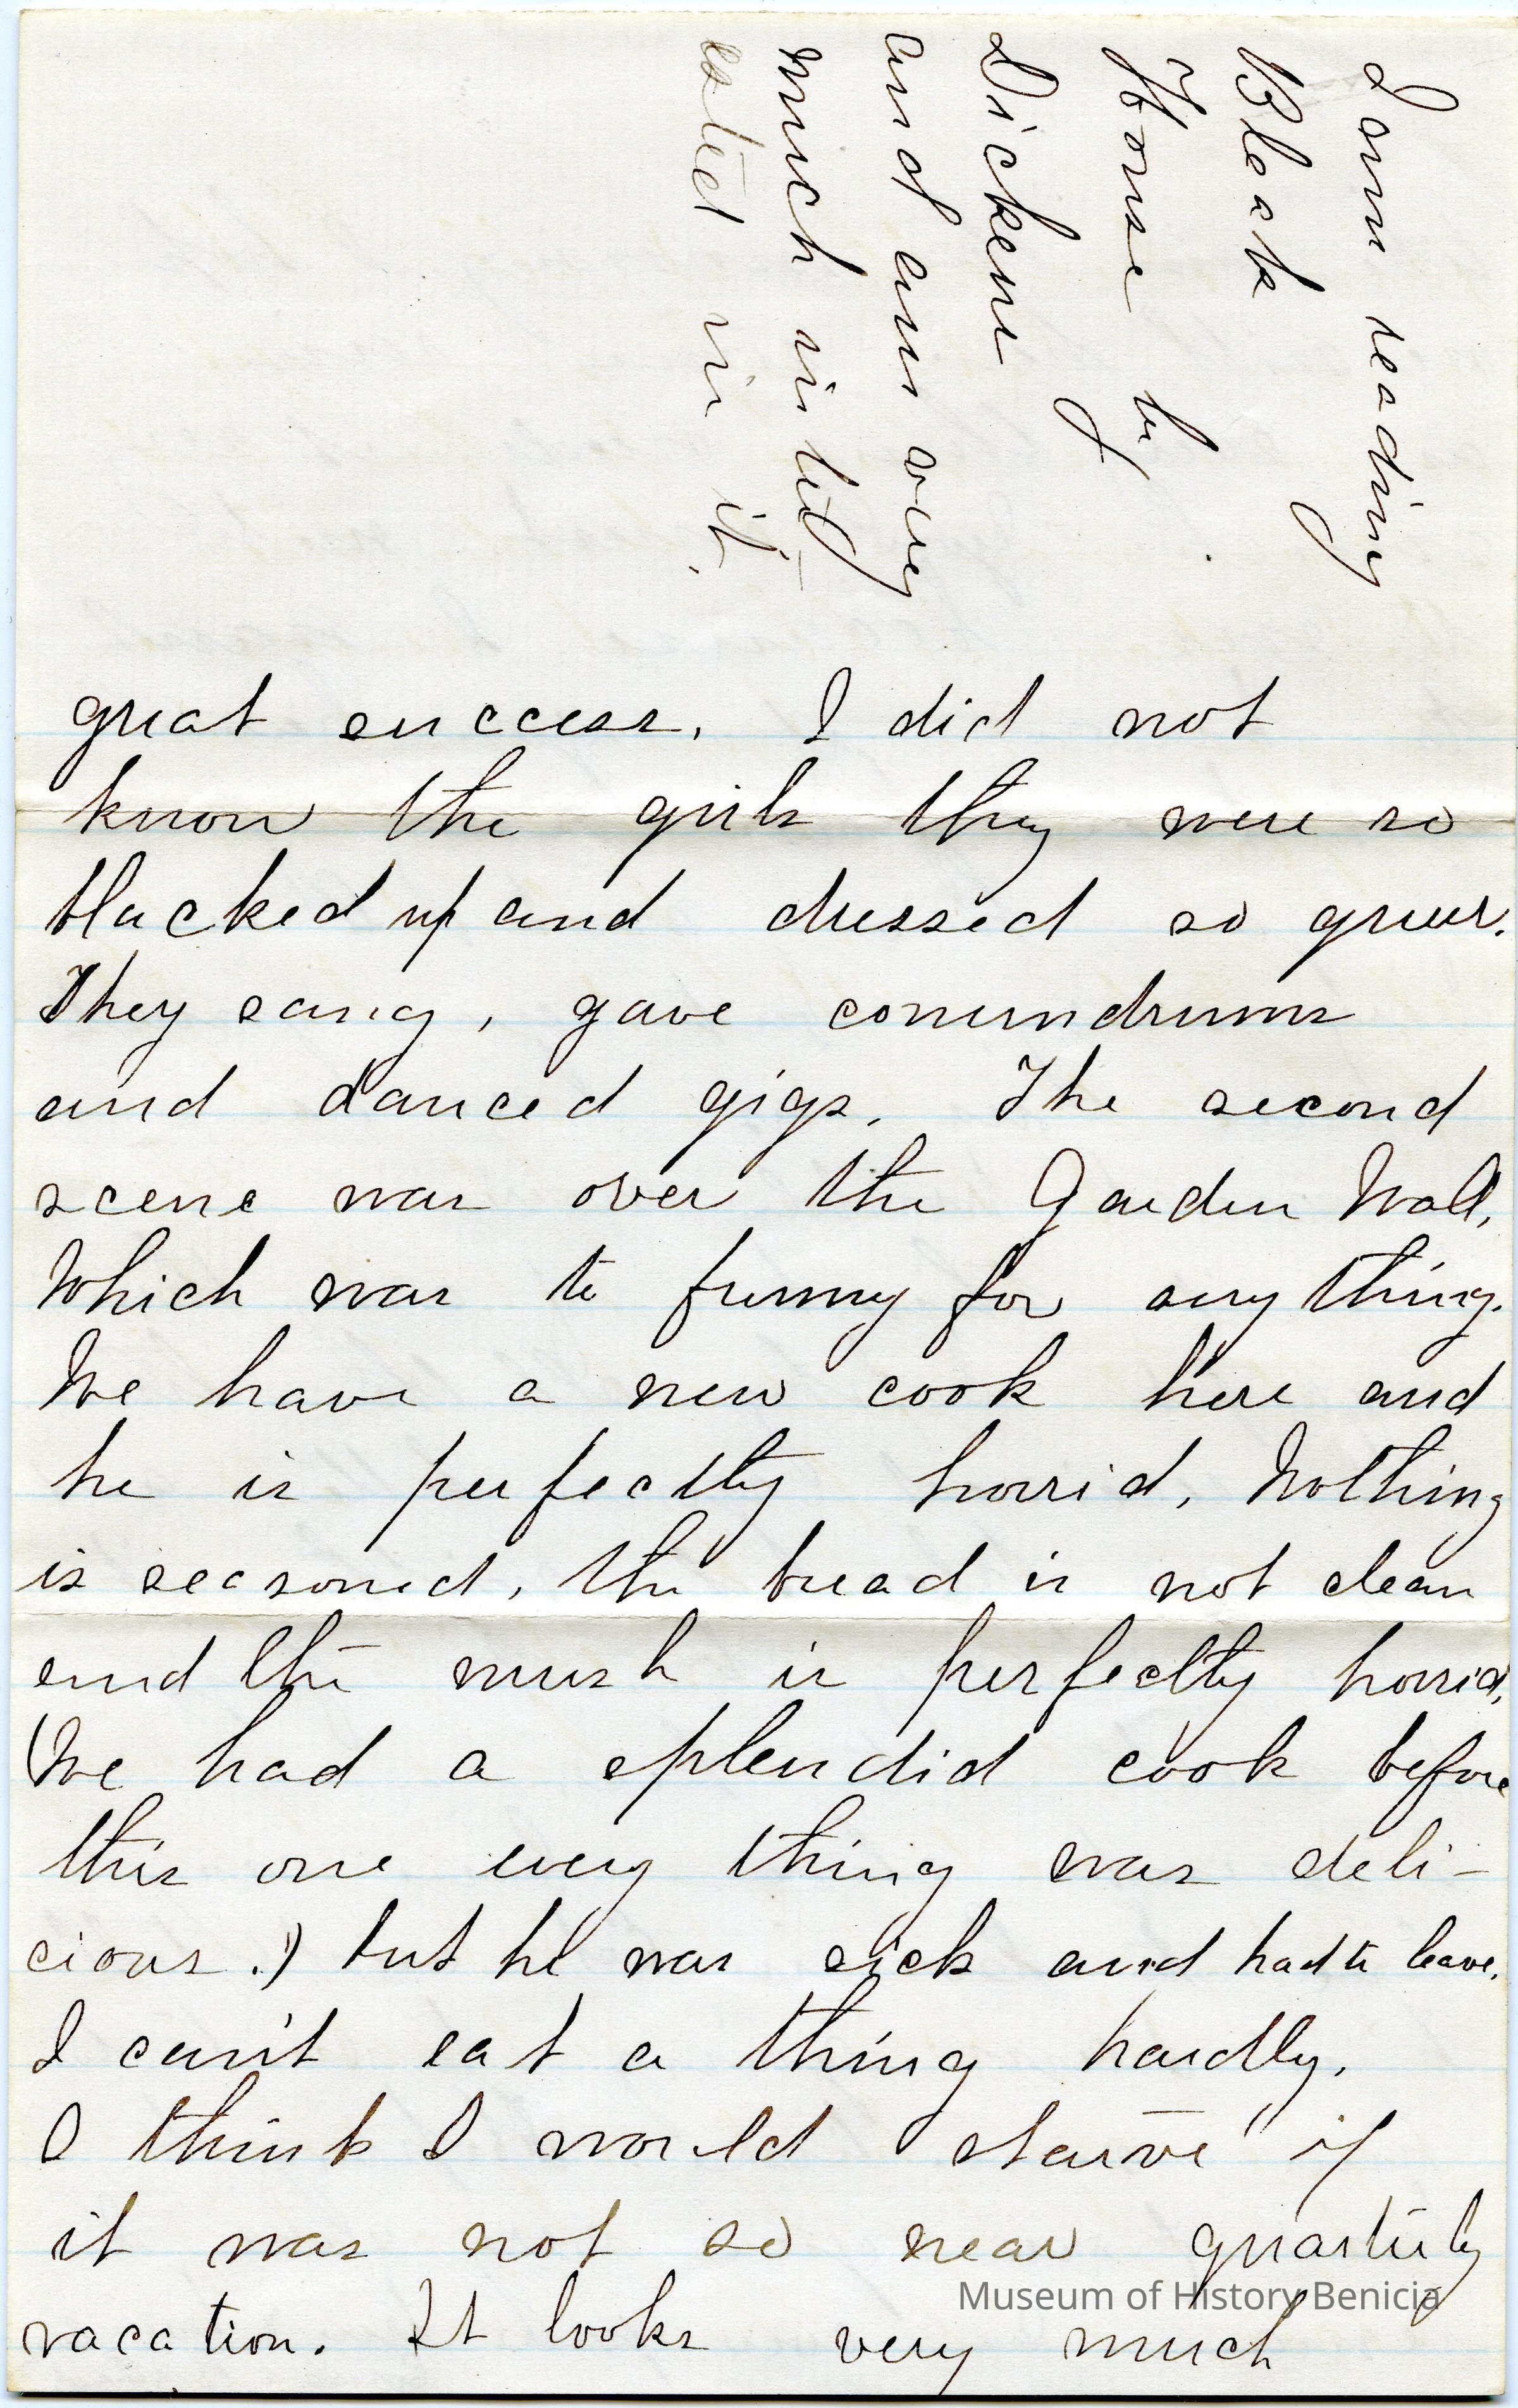 I am reading
Bleak
House by
Dickens
and am very
much inter-
ested in it.
great success. I did not
know the girls they were so
blacked up and dressed so queer.
They sang, gave conundrums
and danced gigs. The second
scene was over the Garden Wall,
Which was to funny for any thing.
We have a new cook here and
he is perfectly horrid, Nothing
is seasoned, the bread is not clean
and the mush is perfectly horrid,
(We had a splendid cook before
this one every thing was deli-
cious.) but he was sick and had to leave.
I can't eat a thing hardly.
I think I would starve if
it was not so near quarterly
vacation. It looks very much
Museum of History Benicia